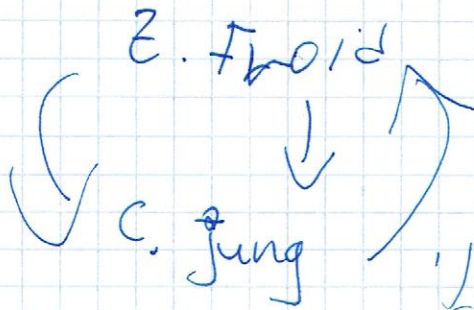 Z. Froid
C. Jung